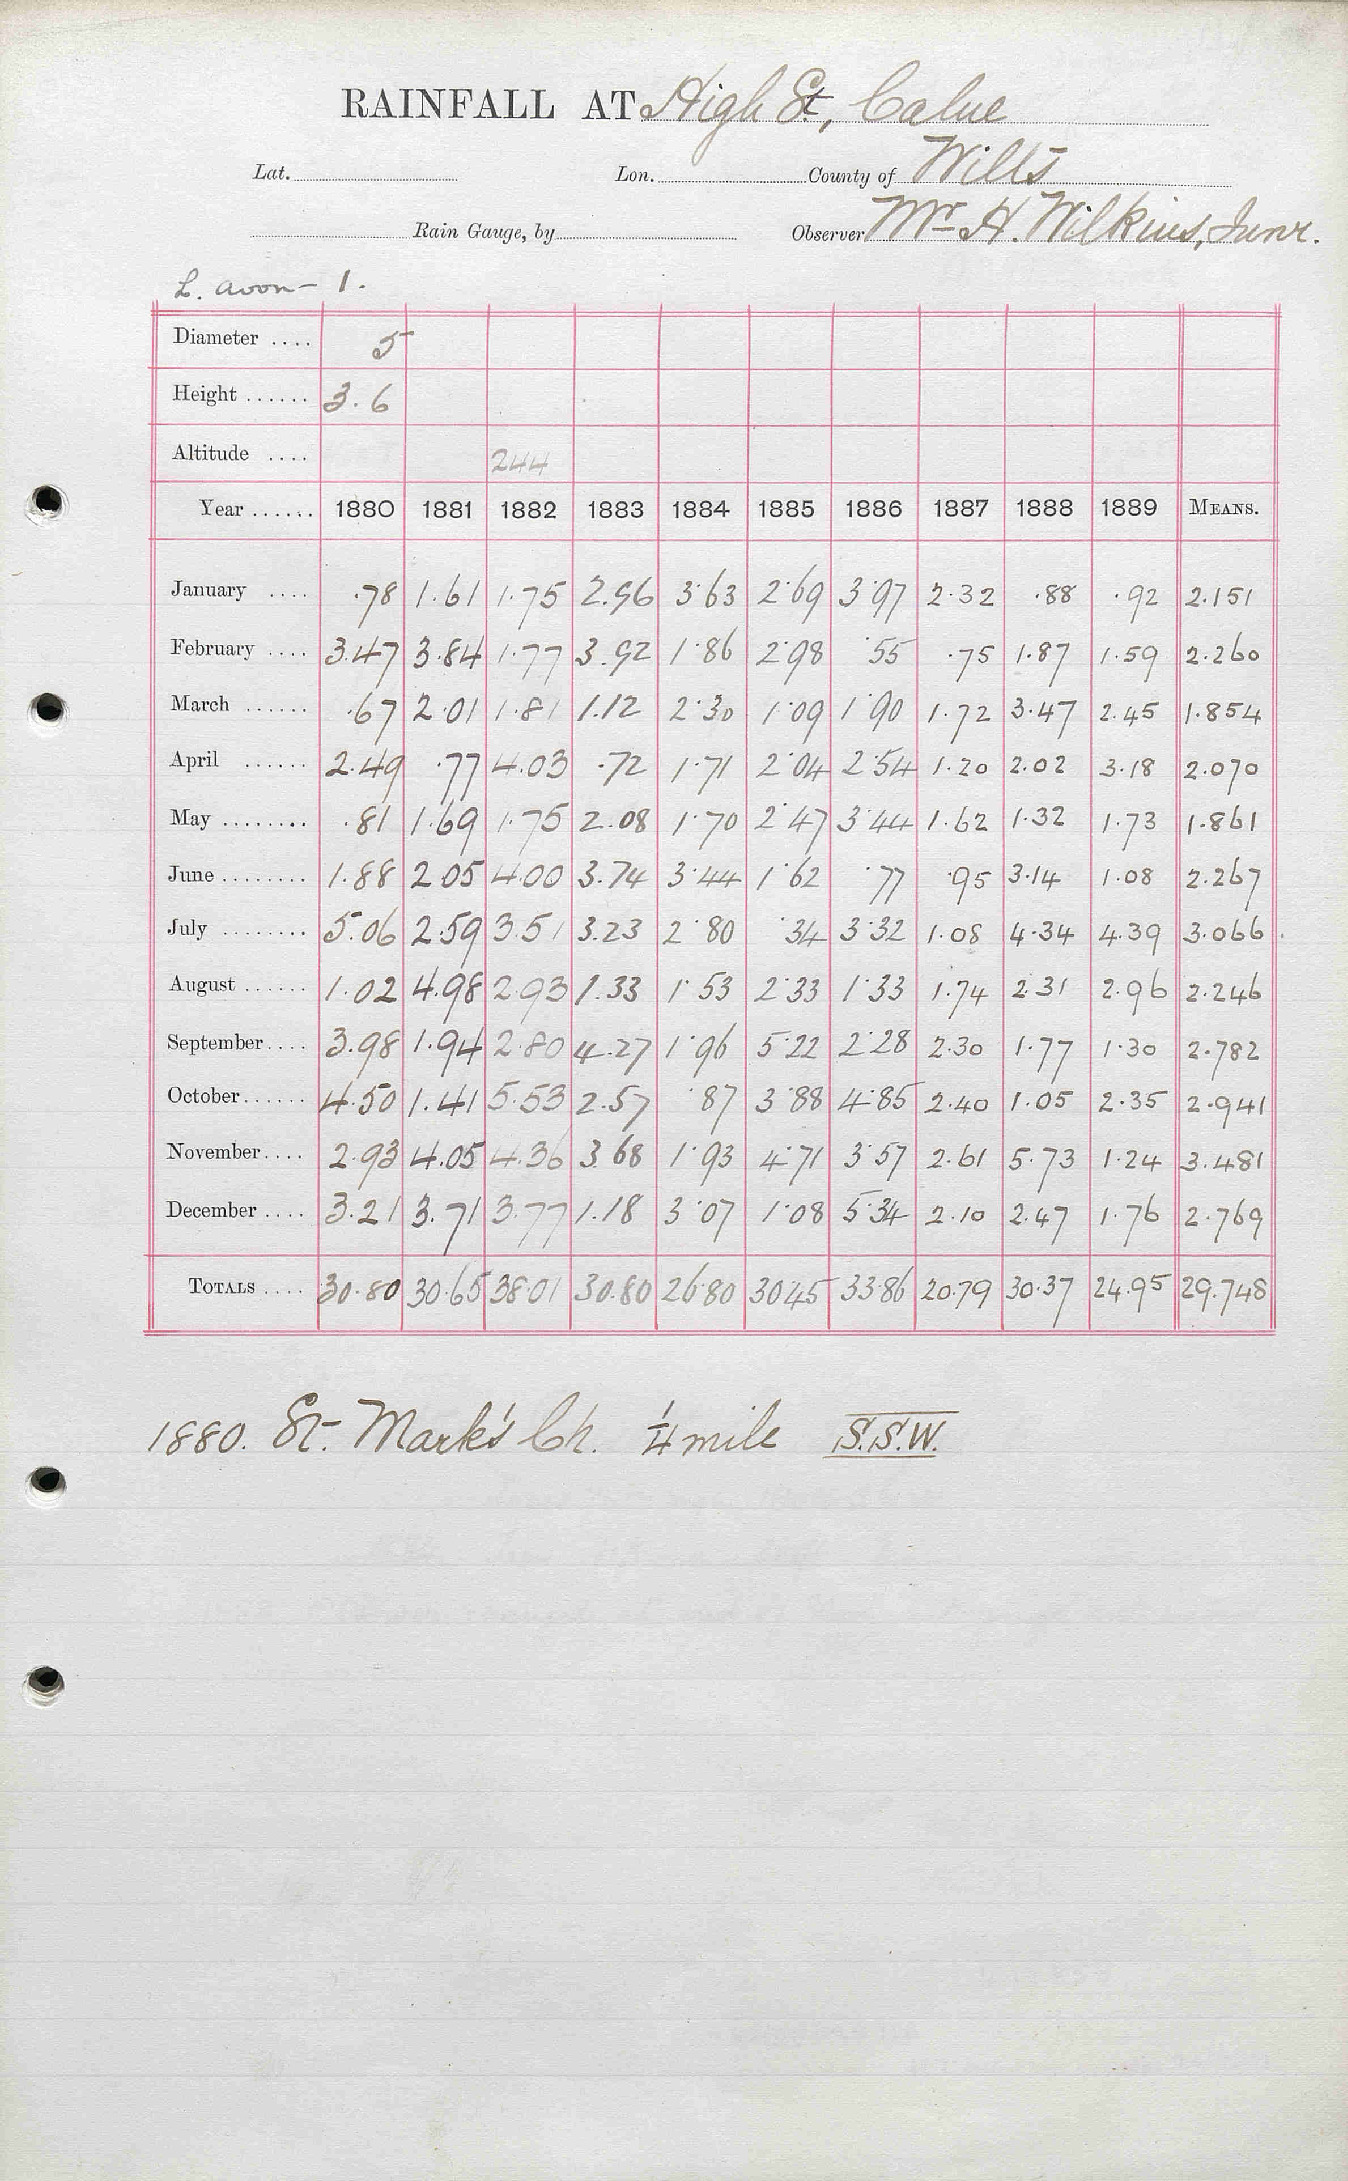 RAINFALL AT High St, Calne
Lat. Lon. County of Wilts
Rain Gauge, by Observer Mr H. Wilkins, Junr.
L. Avon - 1.
Diameter .... 5
Height ...... 3.6
Altitude .... 244
Year ...... 1880 1881 1882 1883 1884 1885 1886 1887 1888 1889 MEANS.
January .... .78 1.61 1.75 2.96 3.63 2.69 3.97 2.32 .88 .92 2.151
February .... 3.47 3.84 1.77 3.92 1.86 2.98 .55 .75 1.87 1.59 2.260
March ...... .67 2.01 1.81 1.12 2.30 1.09 1.90 1.72 3.47 2.45 1.854
April ...... 2.49 .77 4.03 .72 1.71 2.04 2.54 1.20 2.02 3.18 2.070
May ........ .81 1.69 1.75 2.08 1.70 2.47 3.44 1.62 1.32 1.73 1.861
June ........ 1.88 2.05 4.00 3.74 3.44 1.62 .77 .95 3.14 1.08 2.267
July ........ 5.06 2.59 3.51 3.23 2.80 .34 3.32 1.08 4.34 4.39 3.066
August ...... 1.02 4.98 2.93 1.33 1.53 2.33 1.33 1.74 2.31 2.96 2.246
September .... 3.98 1.94 2.80 4.27 1.96 5.22 2.28 2.30 1.77 1.30 2.782
October ...... 4.50 1.41 5.53 2.57 .87 3.88 4.85 2.40 1.05 2.35 2.941
November .... 2.93 4.05 4.36 3.68 1.93 4.71 3.57 2.61 5.73 1.24 3.481
December .... 3.21 3.71 3.77 1.18 3.07 1.08 5.34 2.10 2.47 1.76 2.769
TOTALS .... 30.80 30.65 38.01 30.80 26.80 30.45 33.86 20.79 30.37 24.95 29.748
1880. St. Mark's Ch. 1/4 mile S.S.W.